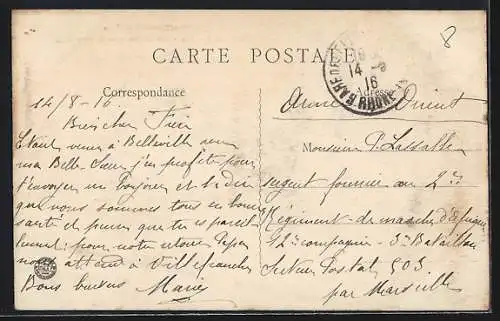 CARTE POSTALE
Correspondance
Adresse
8
GARE DE
14-8
16
RHONE
14/8-16
Bien cher Frère
Etant venu à Belleville
ma Belle-Sœur j'en profite pour
t'envoyer un Bonjour et te dire
que nous sommes tous en bonne
santé et pense que tu es pareil
pour notre retour
nous attend à Villefranche
Bons baisers Marie
Armée Orient
Monsieur P. Lassalle
sergent fourrier au 2me
Régiment de marche d'afrique
12e compagnie - 3e Bataillon
Secteur Postal 503
par Marseille